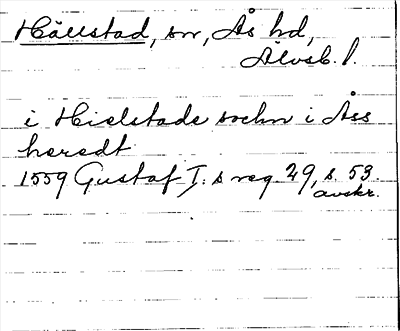 Hällstad, sn, Ås hd,
Älvsb. l.
i Hielstade sochn i Åss
heredt
1559 Gustaf I:s reg. 29, s. 53.
avskr.